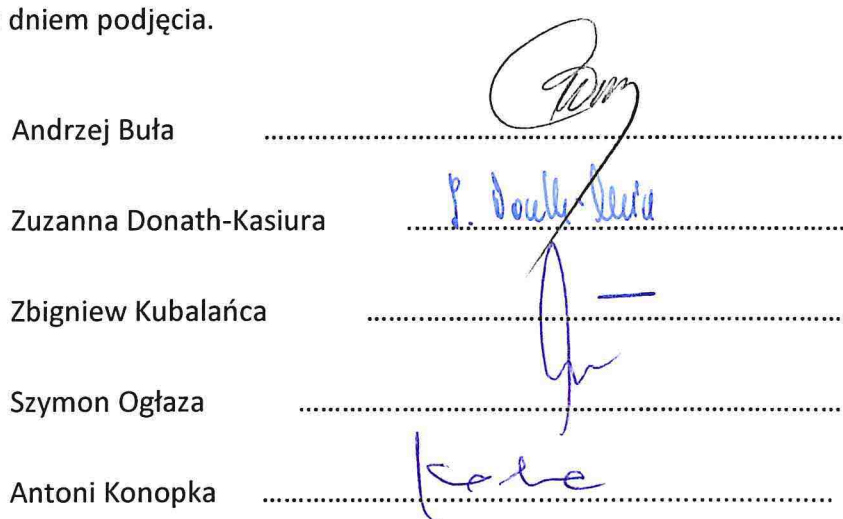 dniem podjęcia.
Andrzej Buła ....................
Zuzanna Donath-Kasiura ....................
Zbigniew Kubalańca ....................
Szymon Ogłaza ....................
Antoni Konopka ....................